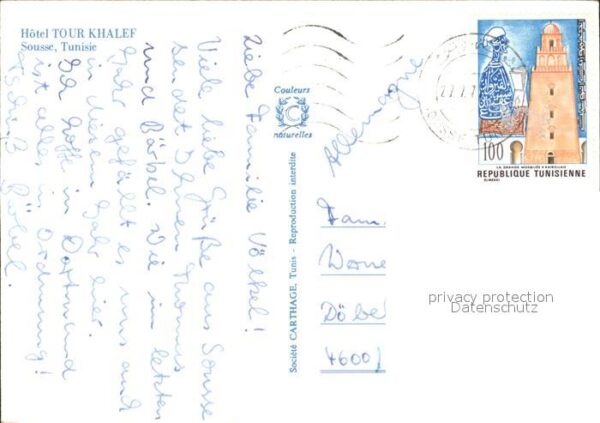 Hôtel TOUR KHALEF
Sousse, Tunisie
Liebe Familie Völkel!
Viele liebe Grüße aus Sousse
sendet Ihnen Thomas
und Bärbel. Wie im letzten
Jahr gefällt es uns auch
in diesem Jahr hier.
Ich hoffe in Dortmund
ist alles in Ordnung!
Bärbel.
Couleurs
C
naturelles
Société CARTHAGE, Tunis - Reproduction interdite
Allemagne
Fam.
Werne
Döbe
4600
100
LA GRANDE MOSQUÉE KAIROUAN
REPUBLIQUE TUNISIENNE
privacy protection
Datenschutz